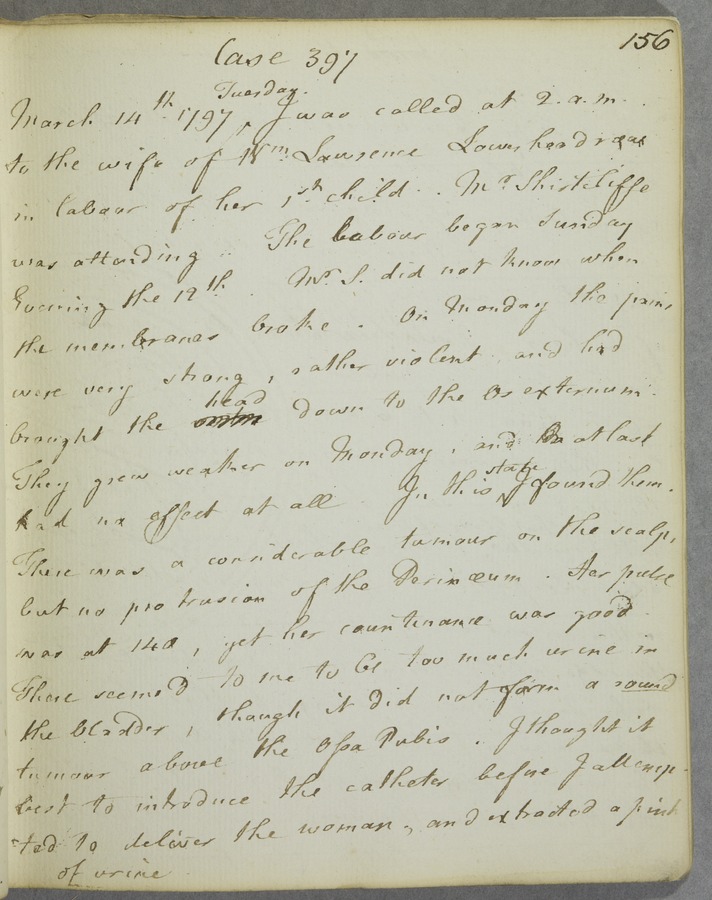 156
Case 397
Tuesday.
March 14th 1797, I was called at 2. a.m.
to the wife of Wm. Lawrence
in labour of her 1st child. Mr Shirtcliffe
was attending. The labour began Sunday
Evening the 12th. Mr. S. did not know when
the membranes broke. On Monday the pains
were very strong, rather violent, and had
head
brought the down to the Os externum.
They grew weaker on Monday, and at last
state
had no effect at all. In this I found them.
There was a considerable tumour on the scalp,
but no protrusion of the Perinæum. Her pulse
was at 140, yet her countenance was good
There seemed to me to be too much urine in
the bladder, though it did not form a round
tumour above the Ossa Pubis. I thought it
best to introduce the catheter before I attemp-
ted to deliver the woman, and extracted a pint
of urine